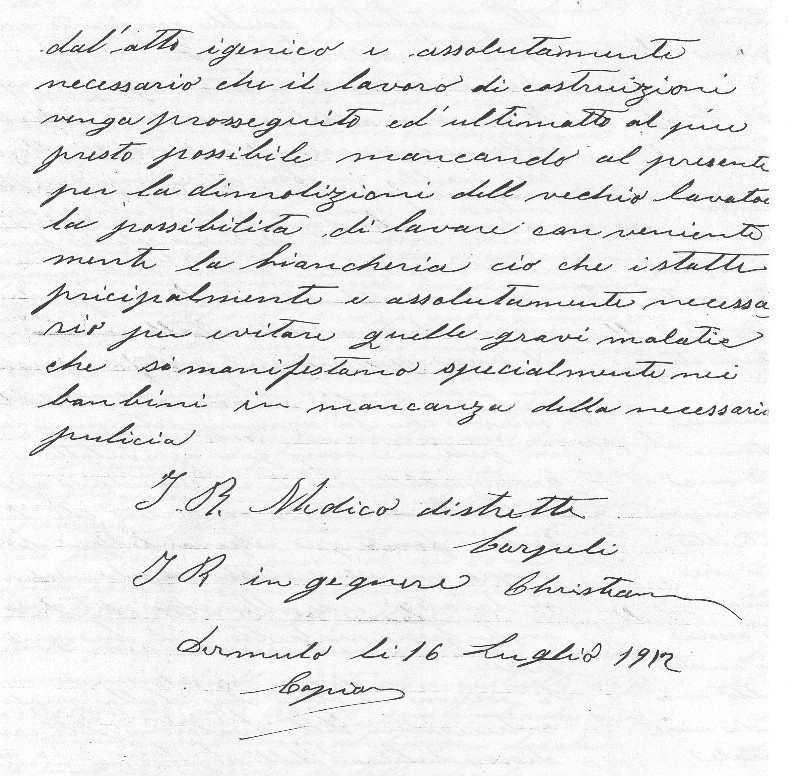 dal'atto igenico e assolutamente
necessario che il lavoro di costruizioni
venga prosseguito ed'ultimatto al piu
presto possibile mancando al presente
per la dimolizioni dell vechio lavatoi
la possibilita di lavare con veniente
mente la biancheria cio che i statte
pricipalmente e assolutamente necessa
rio per evitare quelle gravi malatie
che si manifestano specialmente nei
banbini in mancanza della necessaria
pulicia
I R. Medico distrette
Carpeli
I R in gegnere Christian
Dermulo li 16 Luglio 1912
Copia